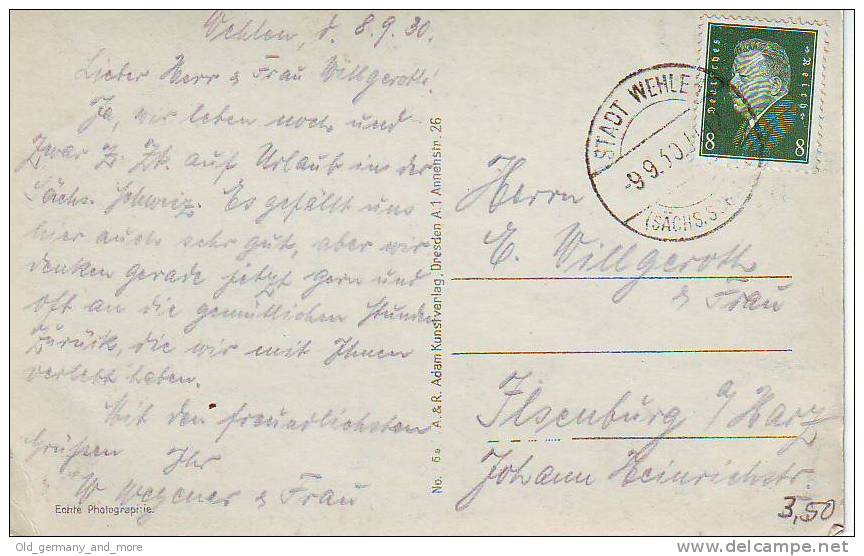 Wehlen, d. 8.9.30.
Lieber Herr & Frau Willgeroth!
Ja, wir leben noch und
zwar z. Zt. auf Urlaub in der
Sächs. Schweiz. Es gefällt uns
hier auch sehr gut, aber wir
denken gerade jetzt gern und
oft an die gemütlichen Stunden
zurück, die wir mit Ihnen
verlebt haben.
Mit den freundlichsten
Grüßen Ihr
W. Wegener & Frau
Echte Photographie.
No. 6a A. & R. Adam Kunstverlag, Dresden A.1 Annenstr. 26
Deutsches Reich
8 8
STADT WEHLEN
-9.9.30.
(SÄCHS.
Herrn
E. Willgeroth
& Frau
Ilsenburg a/Harz
Johann Heinrichstr.
3,50
Old_germany_and_more
delcampe.net